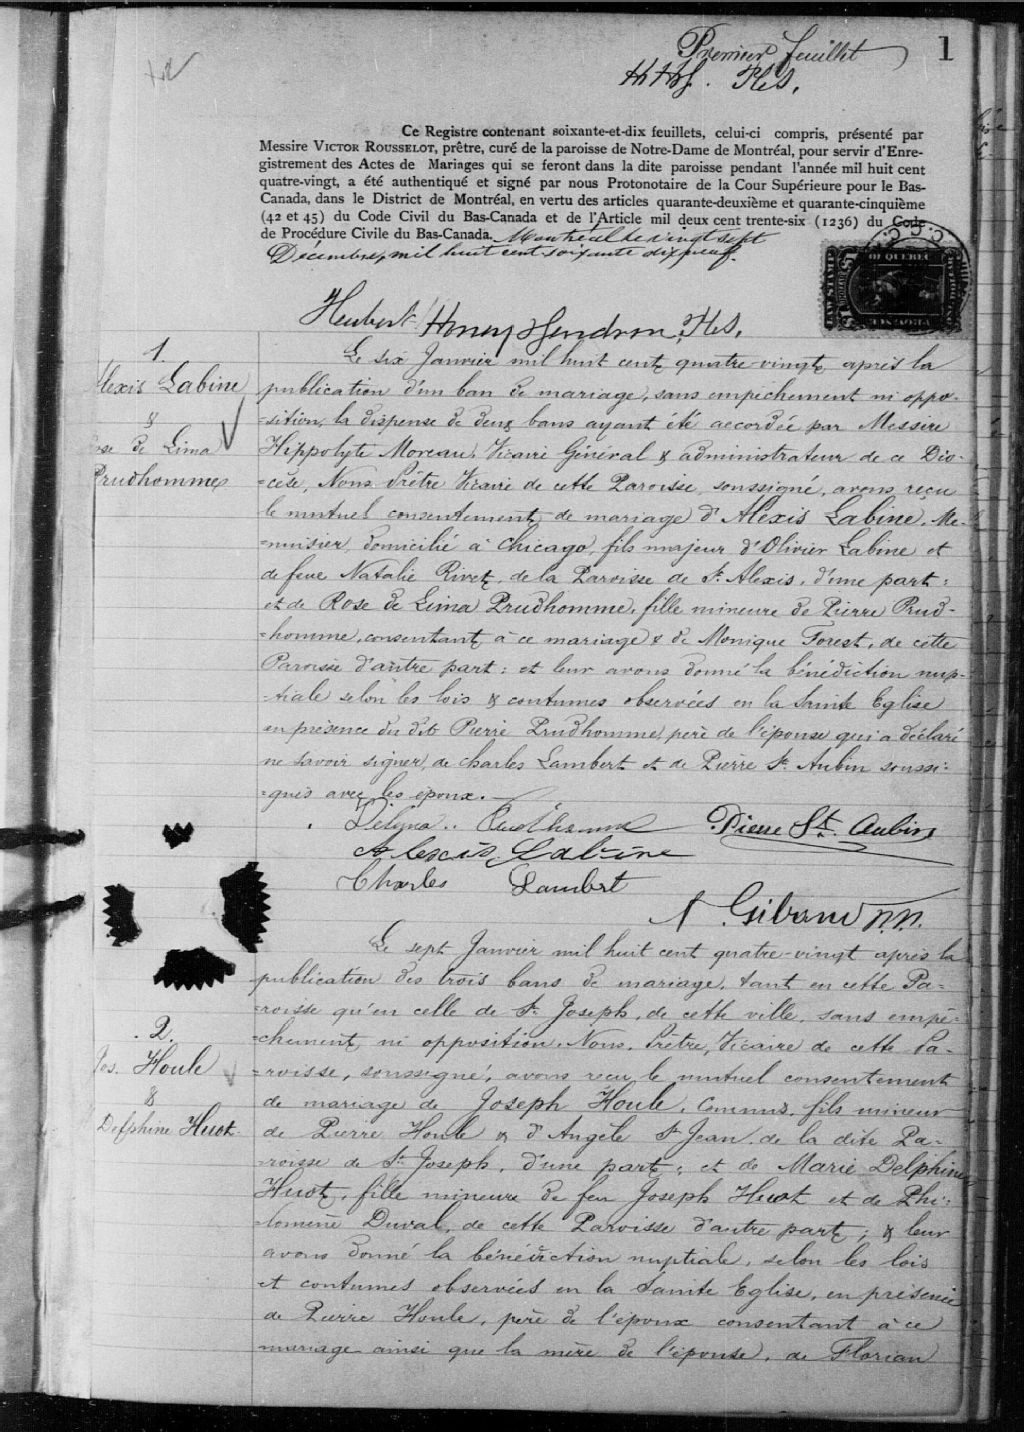 Premier feuillet
1
H & H. PCS.
Ce Registre contenant soixante-et-dix feuillets, celui-ci compris, présenté par
Messire VICTOR ROUSSELOT, prêtre, curé de la paroisse de Notre-Dame de Montréal, pour servir d'Enre-
gistrement des Actes de Mariages qui se feront dans la dite paroisse pendant l'année mil huit cent
quatre-vingt, a été authentiqué et signé par nous Protonotaire de la Cour Supérieure pour le Bas-
Canada, dans le District de Montréal, en vertu des articles quarante-deuxième et quarante-cinquième
(42 et 45) du Code Civil du Bas-Canada et de l'Article mil deux cent trente-six (1236) du Code
de Procédure Civile du Bas-Canada. Montréal le vingt sept
Décembre, mil huit cent soixante dix neuf.
QUEBEC
Hubert Honey Gendron, PCS.
1.
Alexis Labine
&
Rose de Lima
Prudhomme
Le six Janvier mil huit cent quatre-vingt, après la
publication d'un ban de mariage, sans empêchement ni oppo-
=sition, la dispense de deux bans ayant été accordée par Messire
Hippolyte Moreau, Vicaire Général & administrateur de ce Dio-
=cèse, Nous Prêtre Vicaire de cette Paroisse, soussigné, avons reçu
le mutuel consentement de mariage d'Alexis Labine, Me-
=nuisier, domicilié à Chicago, fils majeur d'Olivier Labine et
de feue Natalie Rivet, de la Paroisse de St. Alexis, d'une part:
et de Rose de Lima Prudhomme, fille mineure de Pierre Prud-
=homme, consentant à ce mariage & de Monique Forest, de cette
Paroisse d'autre part: et leur avons donné la bénédiction nup-
=tiale selon les lois & coutumes observées en la Sainte Eglise
en présence du dit Pierre Prudhomme, père de l'épouse qui a déclaré
ne savoir signer, de Charles Lambert et de Pierre St. Aubin soussi-
=gnés avec les époux.
Pierre St. Aubin
Alexis Labine
Charles Lambert
2.
Jos. Houle
&
Delphine Huot
Le sept Janvier mil huit cent quatre-vingt après la
publication des trois bans de mariage, tant en cette Pa-
=roisse qu'en celle de St. Joseph, de cette ville, sans empê-
=chement, ni opposition, Nous, Prêtre, Vicaire de cette Pa-
=roisse, soussigné, avons reçu le mutuel consentement
de mariage de Joseph Houle, Commis, fils mineur
de Pierre Houle & d'Angèle St. Jean, de la dite Pa-
=roisse de St. Joseph, d'une part; et de Marie Delphine
Huot, fille mineure de feu Joseph Huot et de Phi-
=lomène Duval, de cette Paroisse d'autre part; & leur
avons donné la bénédiction nuptiale, selon les lois
et coutumes observées en la Sainte Eglise, en présence
de Pierre Houle, père de l'époux consentant à ce
mariage ainsi que la mère de l'épouse, de Florian